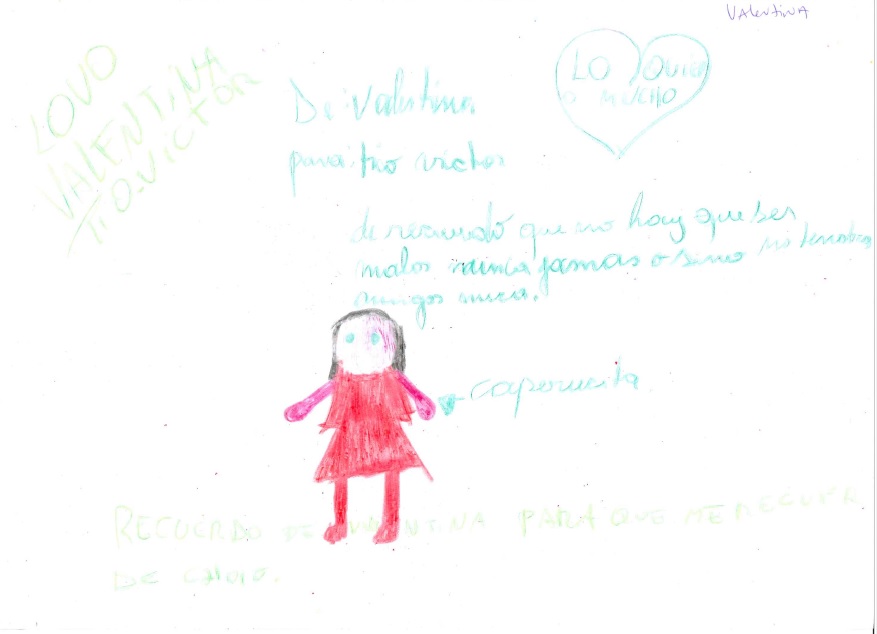 Valentina
LOVO
VALENTINA
TIO.VICTOR
LO QUIER
O MUCHO
De: Valentina
para: tio victor
de recuerdo que no hay que ser
malos nunca jamas o sino no tendras
amigos nunca.
caperucita
RECUERDO DE VALENTINA PARA QUE ME RECUER
DE